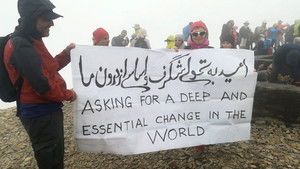 امید به تحولی شگرف از درون ما
ASKING FOR A DEEP AND
ESSENTIAL CHANGE IN THE
WORLD